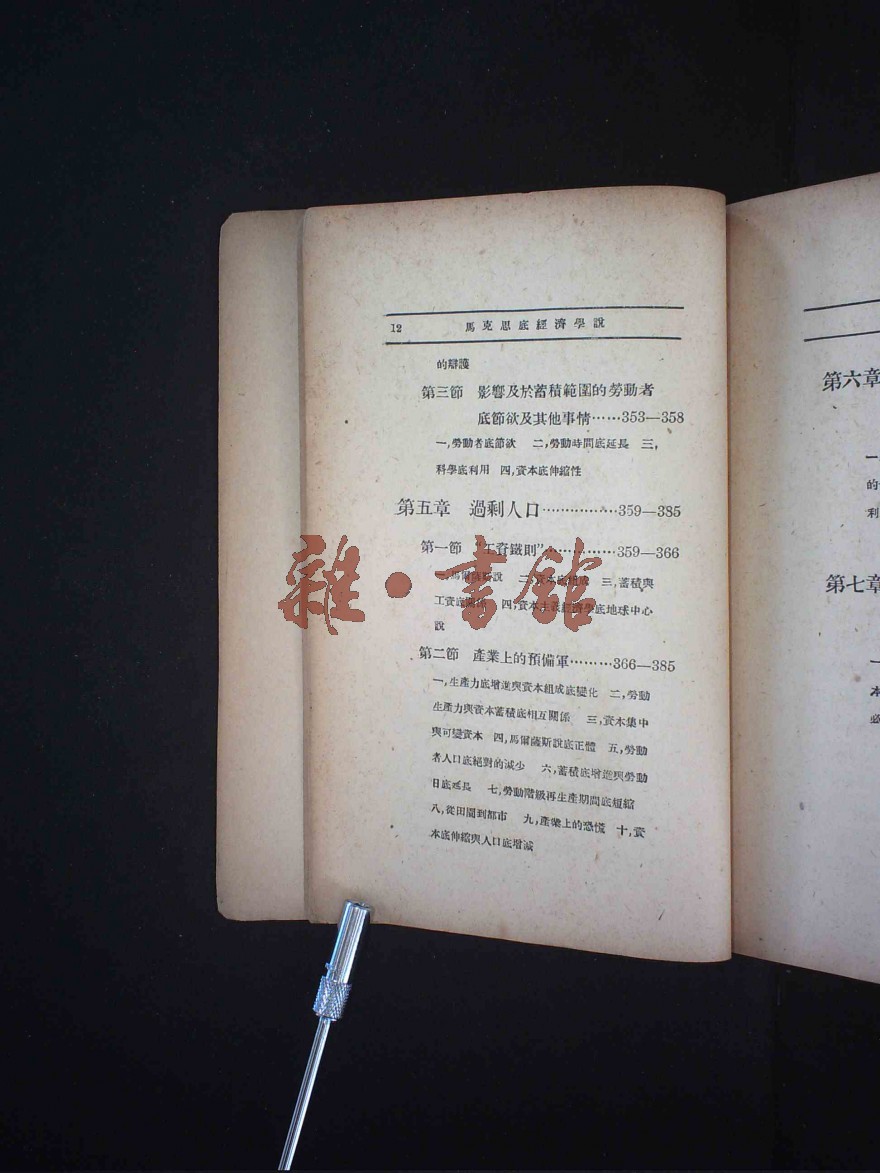 12 馬克思底經濟學說
的辯護
第三節 影響及於蓄積範圍的勞動者
底節欲及其他事情……353—358
一,勞動者底節欲 二,勞動時間底延長 三,
科學底利用 四,資本底伸縮性
第五章 過剩人口……………359—385
第一節 "工資鐵則"……………359—366
一,馬爾薩斯說 二,資本底組成 三,蓄積與
工資底關係 四,資本主義經濟學底地球中心
說
第二節 產業上的預備軍………366—385
一,生產力底增進與資本組成底變化 二,勞動
生產力與資本蓄積底相互關係 三,資本集中
與可變資本 四,馬爾薩斯說底正體 五,勞動
者人口底絕對的減少 六,蓄積底增進與勞動
日底延長 七,勞動階級再生產期間底短縮
八,從田園到都市 九,產業上的恐慌 十,資
本底伸縮與人口底增減
雜·書館
第六章
一
的
利
第七章
一
本
必